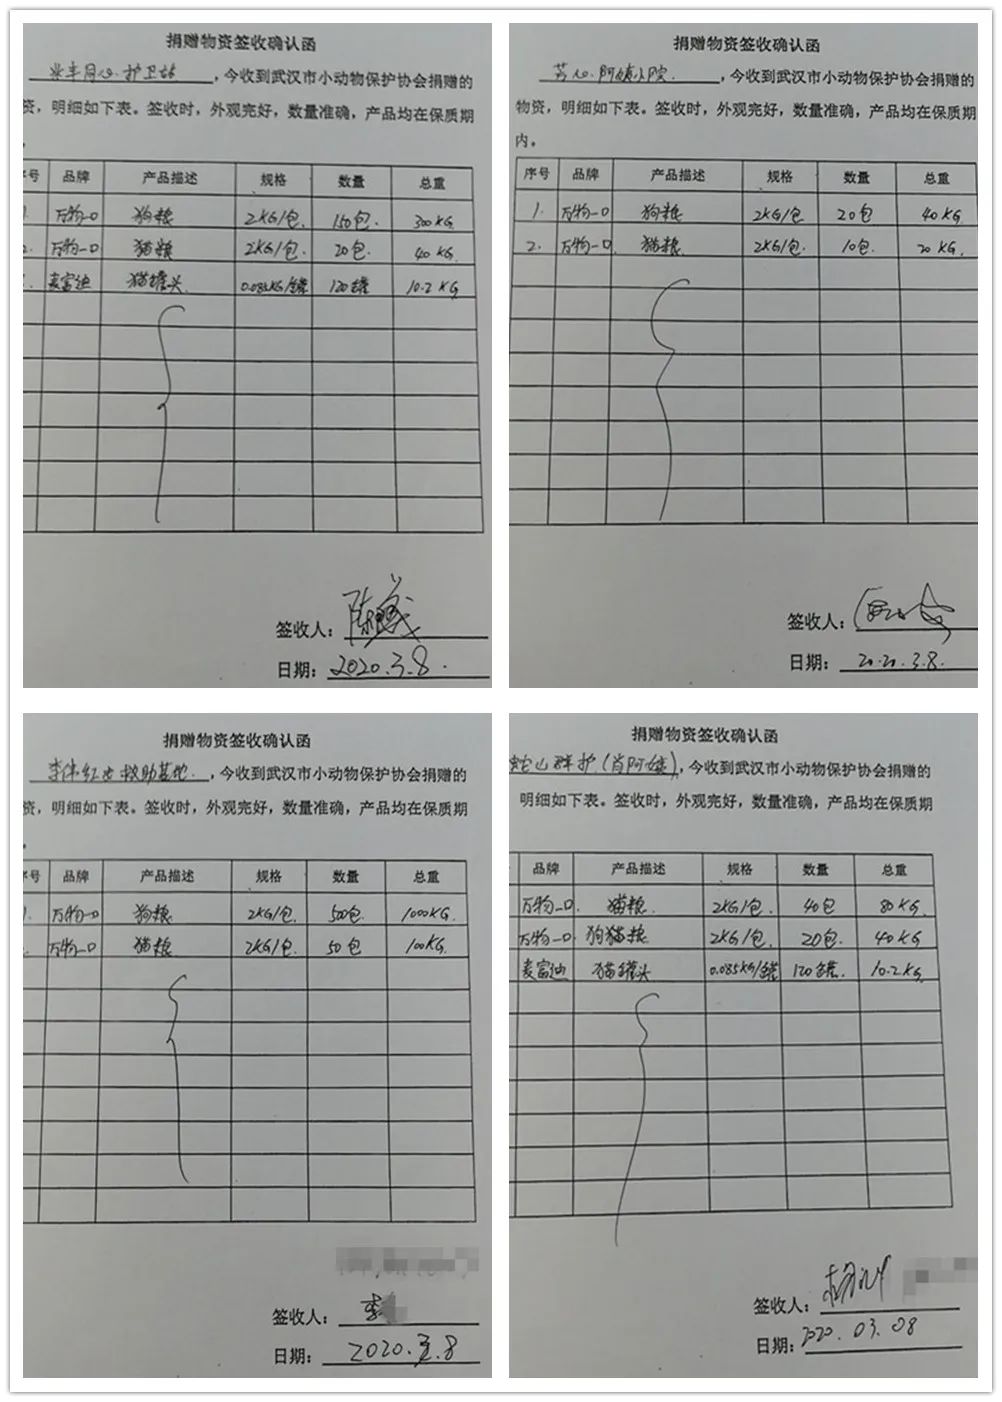 捐赠物资签收确认函
护卫站,今收到武汉市小动物保护协会捐赠的
资,明细如下表。签收时,外观完好,数量准确,产品均在保质期
。
号 品牌 产品描述 规格 数量 总重
1. 万物一口 狗粮 2KG/包. 150包. 300KG.
2. 万物一口 猫粮 2KG/包. 20包. 40KG.
麦富迪 猫罐头 0.085KG/罐 120罐 10.2KG
签收人:
日期: 2020.3.8.
捐赠物资签收确认函
阿姨小院.,今收到武汉市小动物保护协会捐赠的
物资,明细如下表。签收时,外观完好,数量准确,产品均在保质期
内。
序号 品牌 产品描述 规格 数量 总重
1. 万物一口 狗粮 2KG/包 20包 40KG.
2. 万物一口. 猫粮 2KG/包. 10包. 20KG.
签收人:
日期: 2020.3.8.
捐赠物资签收确认函
李伟红 救助基地.,今收到武汉市小动物保护协会捐赠的
资,明细如下表。签收时,外观完好,数量准确,产品均在保质期
。
号 品牌 产品描述 规格 数量 总重
1. 万物一口 狗粮 2KG/包. 500包. 1000KG.
万物一口 猫粮 2KG/包. 50包 100KG.
签收人: 李
日期: 2020.3.8
捐赠物资签收确认函
蛇山群护(肖阿姨),今收到武汉市小动物保护协会捐赠的
明细如下表。签收时,外观完好,数量准确,产品均在保质期
品牌 产品描述 规格 数量 总重
万物一口 猫粮. 2KG/包. 40包 80KG.
万物一口. 狗猫粮 2KG/包. 20包. 40KG
麦富迪 猫罐头 0.085KG/罐 120罐. 10.2KG
签收人:
日期: 2020.03.08